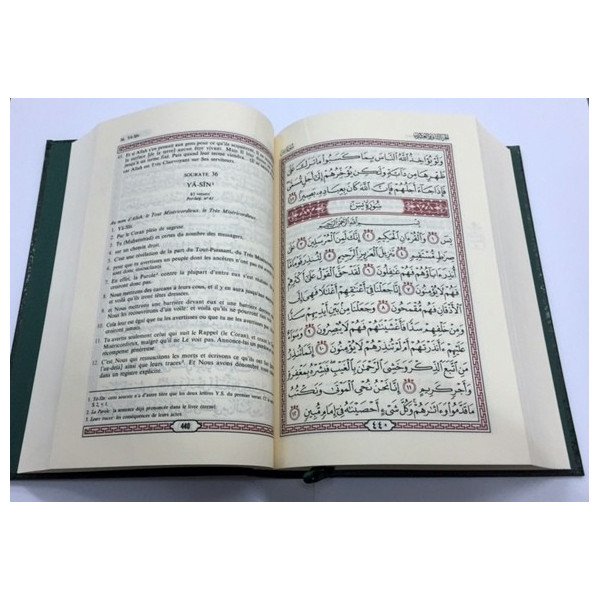 36 YÂ-SÎN
45. Et si Allah s'en prenait aux gens pour ce qu'ils acquièrent,
la surface [de la terre] aucun être vivant. Mais Il leur
un terme fixé. Puis quand leur terme viendra...
car Allah est Très Clairvoyant sur Ses serviteurs.
SOURATE 36
YÂ-SÎN¹
83 versets
Pré-hég. n° 41
Au nom d'Allah, le Tout Miséricordieux, le Très Miséricordieux.
1. Yâ-Sîn.
2. Par le Coran plein de sagesse
3. Tu (Muhammad) es certes du nombre des messagers,
4. sur un chemin droit.
5. C'est une révélation de la part du Tout-Puissant, du Très Miséricordieux,
6. pour que tu avertisses un peuple dont les ancêtres n'ont pas été
donc insouciants.
7. En effet, la Parole² contre la plupart d'entre eux
8. Nous mettrons des carcans à leurs cous,
et voilà qu'ils iront têtes dressées.
9. et Nous mettrons une barrière devant eux et une barrière
les recouvrirons d'un voile: et voilà qu'ils ne
10. Cela leur est égal que tu les avertisses ou que tu ne les
croiront jamais.
11. Tu avertis seulement celui qui suit le Rappel (le Coran), et craint le
Miséricordieux, malgré qu'il ne Le voit pas. Annonce-lui un
récompense généreuse.
12. C'est Nous qui ressuscitons les morts et écrivons ce qu'ils ont
[l'au-delà] ainsi que leurs traces³. Et Nous avons dénombré
dans un registre explicite.
2. La Parole: la sentence déjà prononcée dans le livre éternel.
3. Leurs traces: les conséquences de leurs actes.
440
وَلَوْ يُؤَاخِذُ ٱللَّهُ ٱلنَّاسَ بِمَا كَسَبُوا۟ مَا تَرَكَ عَلَىٰ
ظَهْرِهَا مِن دَآبَّةٍ وَلَـٰكِن يُؤَخِّرُهُمْ إِلَىٰٓ أَجَلٍ مُّسَمًّى
فَإِذَا جَآءَ أَجَلُهُمْ فَإِنَّ ٱللَّهَ كَانَ بِعِبَادِهِۦ بَصِيرًۢا ٤٥
سُورَةُ يسٓ
بِسْمِ ٱللَّهِ ٱلرَّحْمَـٰنِ ٱلرَّحِيمِ
يسٓ ١ وَٱلْقُرْءَانِ ٱلْحَكِيمِ ٢ إِنَّكَ لَمِنَ ٱلْمُرْسَلِينَ ٣ عَلَىٰ
صِرَٰطٍ مُّسْتَقِيمٍ ٤ تَنزِيلَ ٱلْعَزِيزِ ٱلرَّحِيمِ ٥ لِتُنذِرَ قَوْمًا مَّآ
أُنذِرَ ءَابَآؤُهُمْ فَهُمْ غَـٰفِلُونَ ٦ لَقَدْ حَقَّ ٱلْقَوْلُ عَلَىٰٓ أَكْثَرِهِمْ
فَهُمْ لَا يُؤْمِنُونَ ٧ إِنَّا جَعَلْنَا فِىٓ أَعْنَـٰقِهِمْ أَغْلَـٰلًا فَهِىَ إِلَى
ٱلْأَذْقَانِ فَهُم مُّقْمَحُونَ ٨ وَجَعَلْنَا مِنۢ بَيْنِ أَيْدِيهِمْ سَدًّا
وَمِنْ خَلْفِهِمْ سَدًّا فَأَغْشَيْنَـٰهُمْ فَهُمْ لَا يُبْصِرُونَ ٩ وَسَوَآءٌ
عَلَيْهِمْ ءَأَنذَرْتَهُمْ أَمْ لَمْ تُنذِرْهُمْ لَا يُؤْمِنُونَ ١٠ إِنَّمَا تُنذِرُ مَنِ
ٱتَّبَعَ ٱلذِّكْرَ وَخَشِىَ ٱلرَّحْمَـٰنَ بِٱلْغَيْبِ فَبَشِّرْهُ بِمَغْفِرَةٍ
وَأَجْرٍ كَرِيمٍ ١١ إِنَّا نَحْنُ نُحْىِ ٱلْمَوْتَىٰ وَنَكْتُبُ
مَا قَدَّمُوا۟ وَءَاثَـٰرَهُمْ وَكُلَّ شَىْءٍ أَحْصَيْنَـٰهُ فِىٓ إِمَامٍ مُّبِينٍ ١٢
٤٤٠